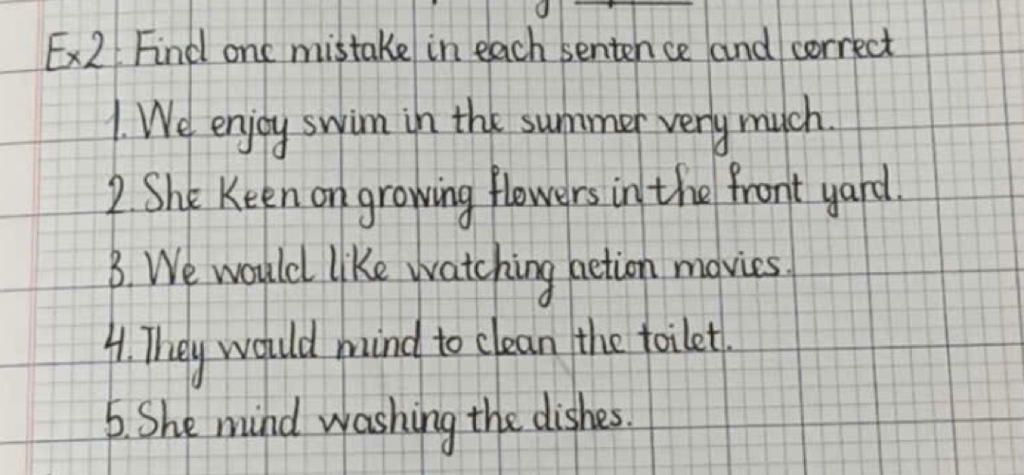 Ex2: Find one mistake in each sentence and correct
1. We enjoy swim in the summer very much.
2. She Keen on growing flowers in the front yard.
3. We would like watching action movies.
4. They would mind to clean the toilet.
5. She mind washing the dishes.